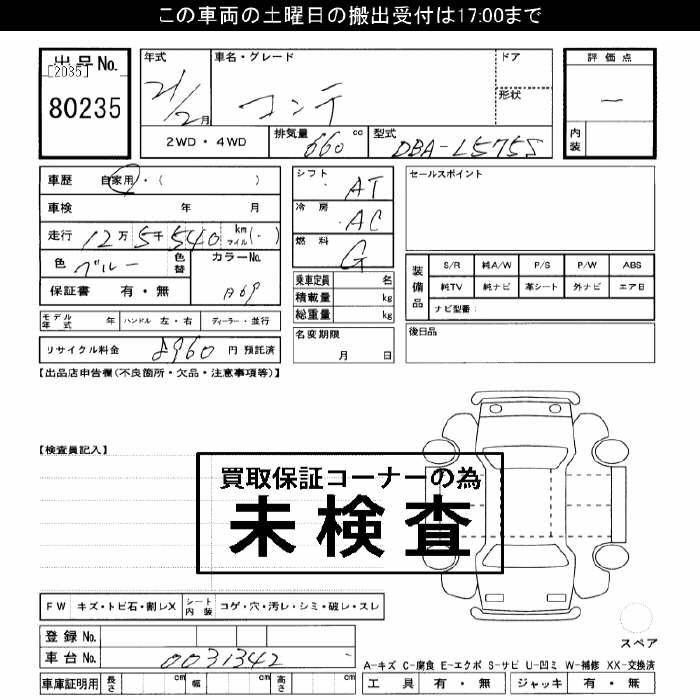 この車両の土曜日の搬出受付は17:00まで
出品No.
[2035]
80235
年式 車名・グレード ドア
21/2月 コンテ 形状
2WD・4WD 排気量 660 cc 型式 DBA-L575S
評価点
ー
内装
車歴 自家用・( )
車検 年 月
走行 12万5千540 km マイル(・)
色 ブルー 色替 カラーNo.
保証書 有・無 B69
モデル年式 年 ハンドル 左・右 ディーラー・並行
リサイクル料金 8960 円 預託済
シフト AT
冷房 AC
燃料 G
乗車定員 名
積載量 kg
総重量 kg
名変期限
月 日
セールスポイント
装備品 S/R 純A/W P/S P/W ABS
純TV 純ナビ 革シート 外ナビ エアB
ナビ型番:
後日品
【出品店申告欄(不良箇所・欠品・注意事項等)】
【検査員記入】
買取保証コーナーの為
未検査
FW キズ・トビ石・割レX シート内装 コゲ・穴・汚レ・シミ・破レ・スレ
登録No.
車台No. 0031342
車庫証明用 長さ cm 幅 cm 高さ cm
スペア
A-キズ C-腐食 E-エクボ S-サビ U-凹ミ W-補修 XX-交換済
工具 有・無 ジャッキ 有・無